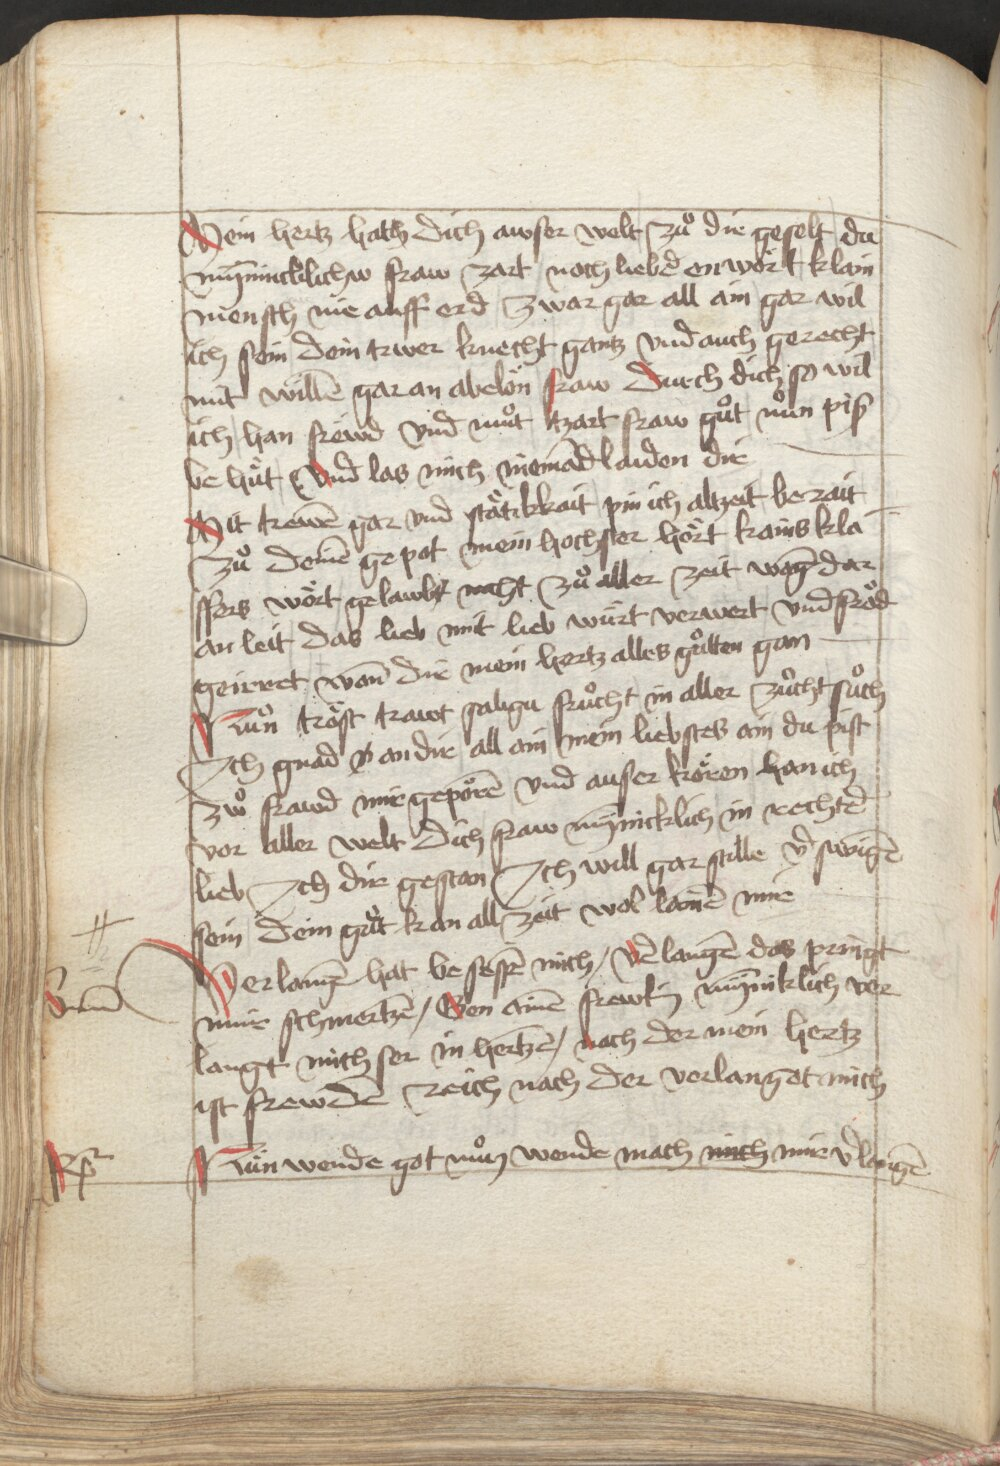 Mein hertz hath dich ausser welt zů dir geselt du
mÿnnicklichw fraw zart noch liebd en wört klain
mensch nie auff erd zwar gar all ain gar wil
ich sein dein trwer knecht gantz vnd auch gerecht
mit willē gar an abelön fraw durch dich so wil
ich han fröwd vnd můt tzart fraw gůt nůn piß
be hüt Vnd las mich niemād laiden die
Mit trewē gar vnd stätikkait pin ich altzeit berait
zů deinē gepot mein hochster hört kains kla
ffers wört gelawbt nicht zů aller zeit wāg dar
an leit das lieb mit lieb würt verwert vnd fröd
geirret wañ dir mein hertz alles gůtten gan
Nůn tröst trawt saligu frůcht in aller zůcht sůch
Ich gnad an dir all ain mein liebstes ain du pist
zwo frawd mir geporē vnd ausser koren han ich
vor aller welt dich fraw mÿnicklich in rechtē
lieb Ich dir gestan Ich will gar stille v̄swigē
sein dein gůt kan all zeit wol lonē mir
Verlangē hat besessē mich / V̄langē das pringt
mir schmertzē / Gen ainē frewlin mÿniklich ver
langt mich ser in hertzē / nach der mein hertz
ist frewdē reich nach der verlanget mich
Rp̄ Nůn wende got můn wende mach mir v̄langē